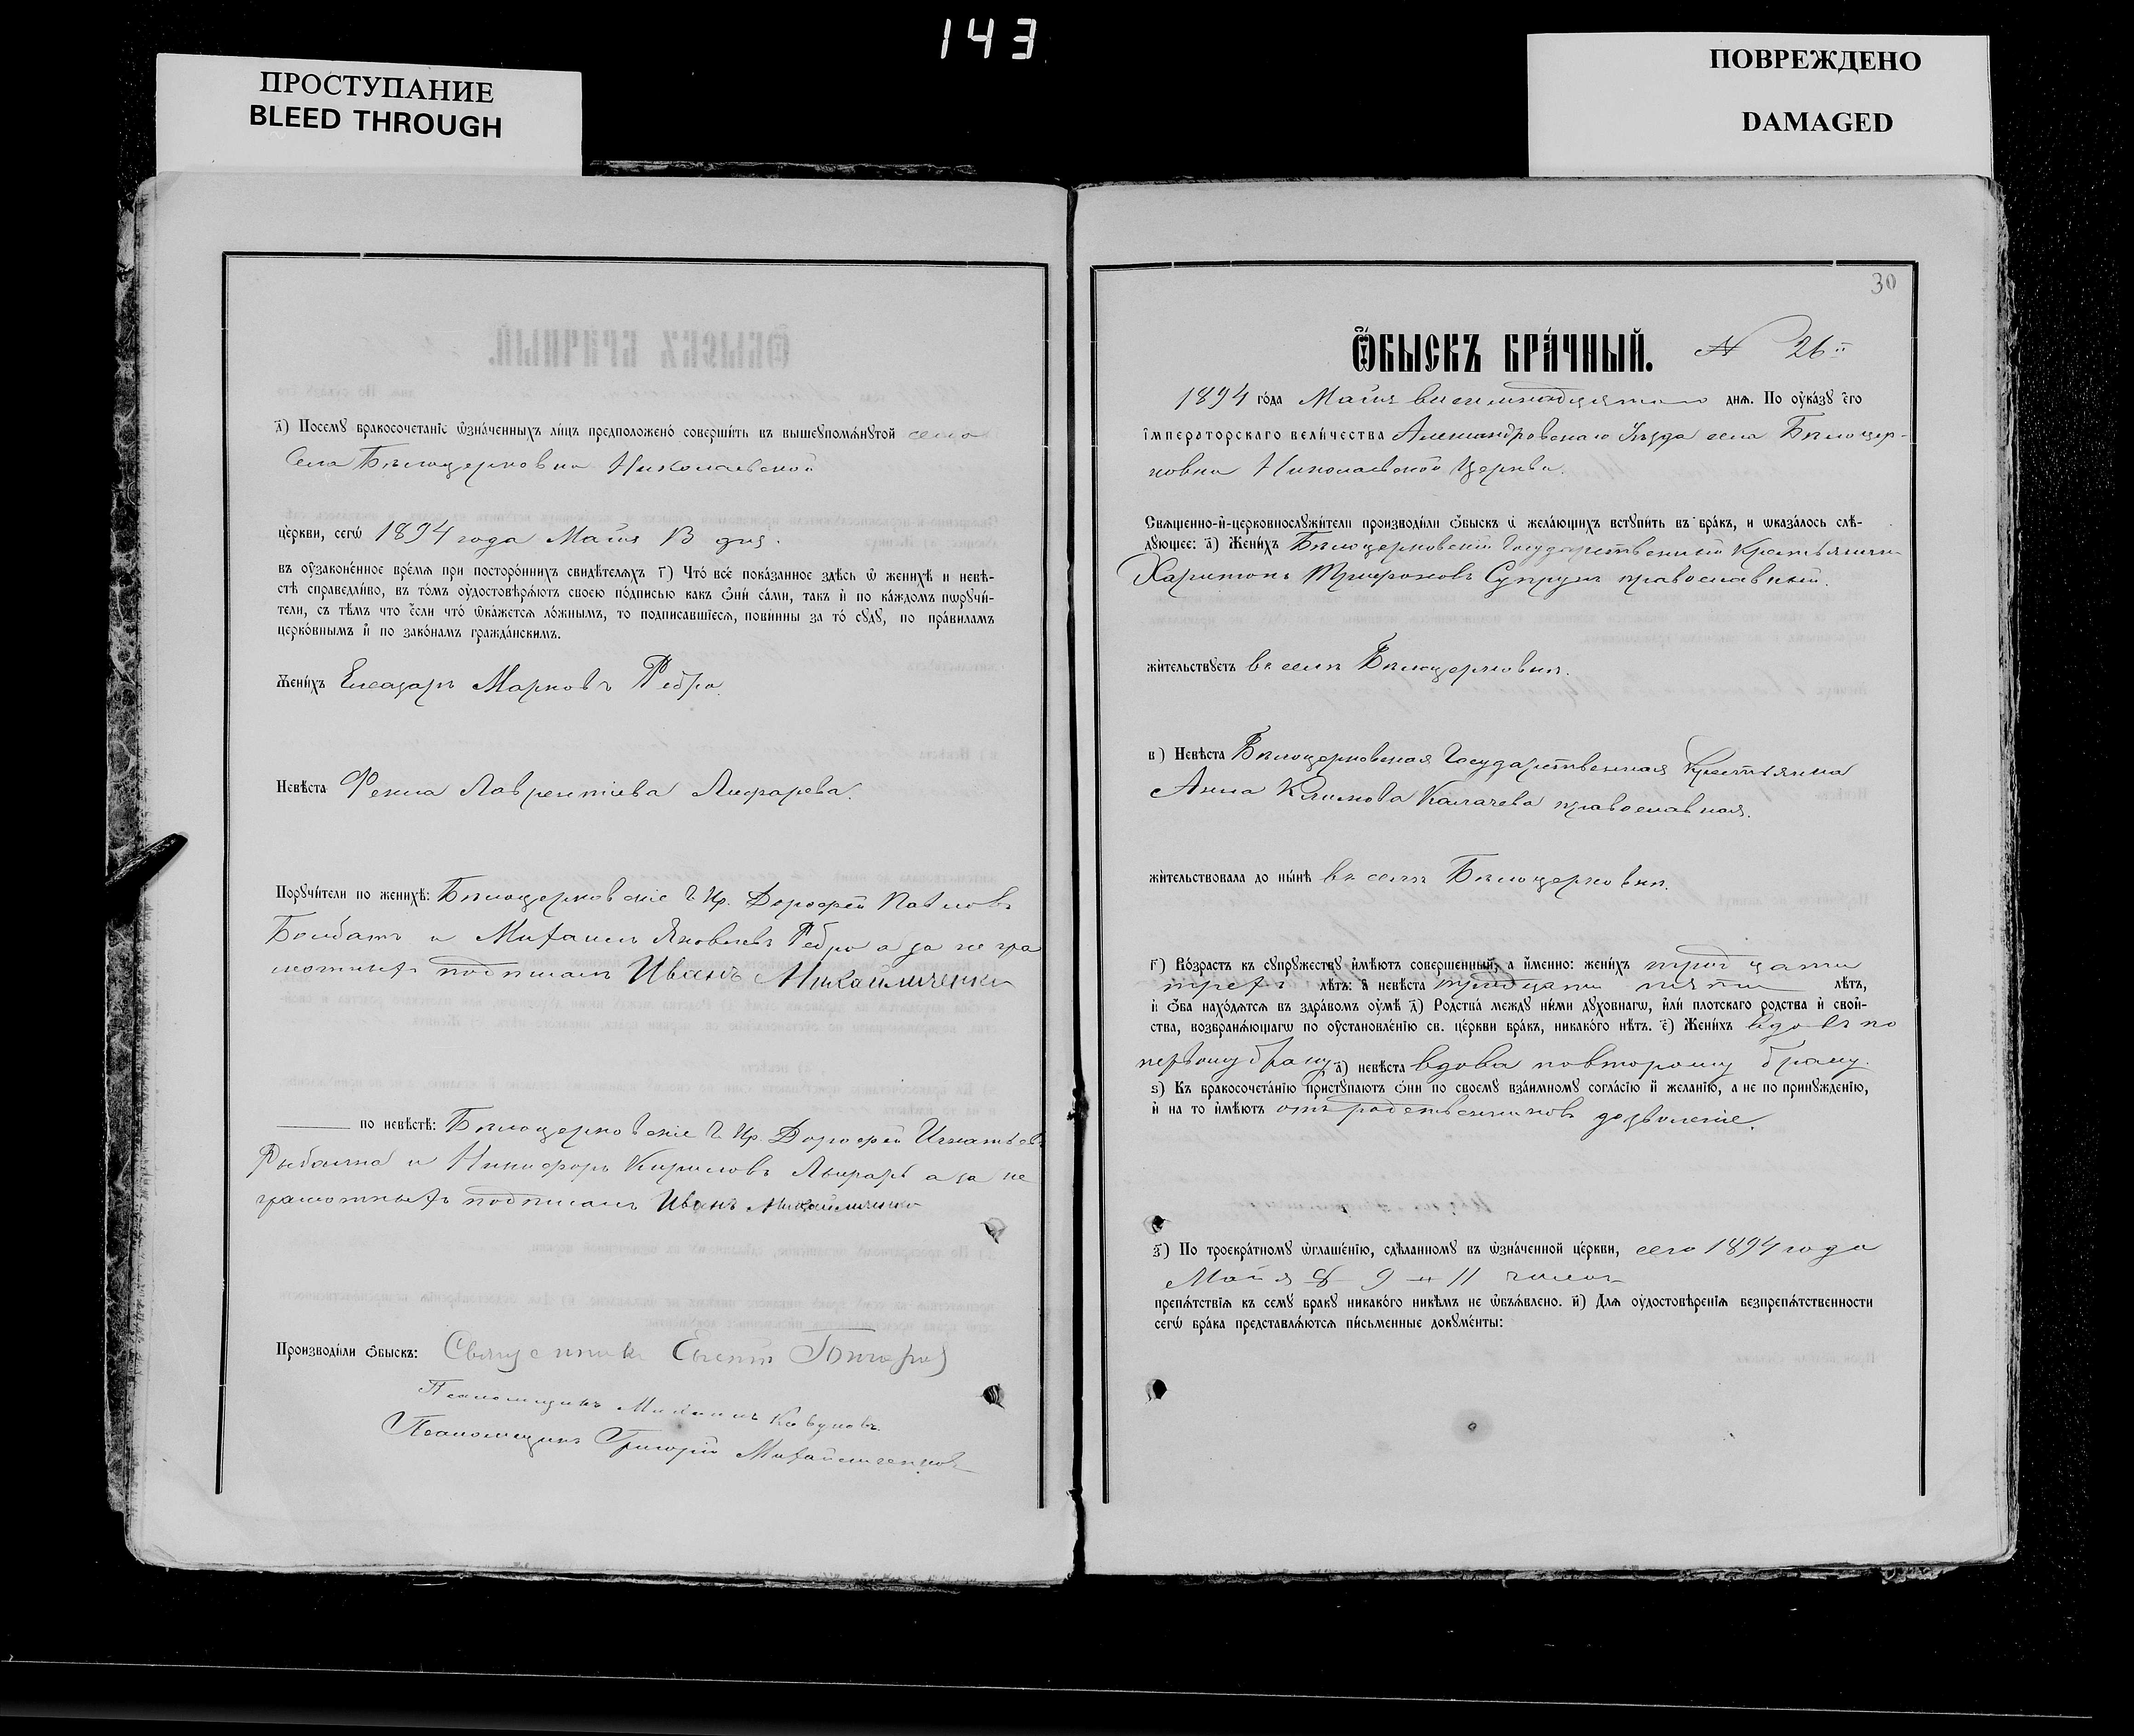 143
ПРОСТУПАНИЕ
BLEED THROUGH
ПОВРЕЖДЕНО
DAMAGED
д҃) Посемꙋ бракосочетанїе ѡ҆зна́ченныхъ ли́цъ предположено̀ соверши́ть въ вышеꙋпомѧ́нꙋтой села
Села Бѣлоцерковки Николаевской
це́ркви, сегѡ̀ 1894 года Маія 13 дня.
въ оу҆зако́ненное вре́мѧ при посторо́ннихъ свидѣ́телѧхъ г҃) Что̀ всѐ пока́занное здѣ́сь ѡ женихѣ̀ и невѣ́-
стѣ справедли́во, въ то́мъ оу҆достовѣрѧ́ютъ своею по́дписью какъ ѻ҆нѝ са́ми, такъ ѝ по ка́ждомъ пѡрꙋчи́-
тели, съ тѣ́мъ что є҆́сли что̀ ѡ҆ка́жетсѧ ло́жнымъ, то подписавшїесѧ, пови́нны за то̀ сꙋдꙋ̀, по пра́виламъ
церко́внымъ ѝ по зако́намъ гражда́нскимъ.
Жени́хъ Елеазаръ Марковъ Ребро.
Невѣ́ста Фекла Лаврентіева Лифарева.
Порꙋчи́тели по женихѣ̀: Бѣлоцерковскіе Г. Кр. Дорофей Павловъ
и Михаилъ Яковлевъ Ребро а за не гра
мотныхъ подписалъ Иванъ Михайличенко
по невѣ́стѣ: Бѣлоцерковскіе Г. Кр. Дорофей Игнатьевъ
Рыбалка и Никифоръ Кириловъ Лыфарь а за не
грамотныхъ подписалъ Иванъ Михайличенко
Производи́ли ѻ҆́быскъ: Священникъ
Псаломщикъ Михаилъ Кавуновъ.
Псаломщикъ Григорій Михайличенковъ
30
Ѻ҆́БЫСКЪ БРА́ЧНЫЙ. № 26й
1894 го́да Маія восемнадцятого днѧ. По оу҆ка́зꙋ є҆гѡ̀
і҆мператорскаго вели́чества Александровскаго Уѣзда села Бѣлоцер-
ковки Николаевской Церкви.
Свѧщенно-ѝ-церковнослꙋжи́тели производи́ли ѻ҆́быскъ ѡ жела́ющихъ встꙋпи́ть въ бра́къ, и ѡказа́лось слѣ́-
дꙋющее: а҃) Жени́хъ Бѣлоцерковскій Государственный Крестьянинъ
Харитонъ Трифоновъ Супрунъ православный.
жи́тельствꙋетъ въ селѣ Бѣлоцерковкѣ.
в҃) Невѣ́ста Бѣлоцерковская Государственная Крестьянка
Анна Климова Калачева православная.
жи́тельствовала до ны́нѣ въ селѣ Бѣлоцерковкѣ.
г҃) Во́зрастъ къ сꙋпрꙋ́жествꙋ и҆мѣ́ютъ соверше́нный, а и҆́менно: жени́хъ тридцати
трехъ лѣ́тъ: а҆ невѣ́ста тридцати пяти лѣ́тъ,
ѝ ѻ҆́ба нахо́дѧтсѧ въ здра́вомъ оу҆мѣ̀ д҃) Родства̀ междꙋ ни́ми дꙋхо́внагѡ, и҆лѝ пло́тскаго родства̀ и свой-
ства, возбранѧ́ющагѡ по оу҆становле́нїю св. це́ркви бра́къ, никако́го нѣ́тъ. є҃) Жени́хъ вдовъ по
первому браку, а҃) невѣ́ста вдова повторому браку.
ѕ҃) Къ бракосочета́нїю пристꙋпа́ютъ ѻ҆нѝ по своемꙋ̀ взаи́мномꙋ согла́сїю ѝ жела́нїю, а не по принꙋжде́нїю,
ѝ на то и҆мѣ́ютъ отъ родственниковъ дозволеніе.
з҃) По троекра́тномꙋ ѡ҆глаше́нїю, сдѣ́ланномꙋ въ ѡ҆зна́ченной це́ркви, сего 1894 года
Маія 8 9 и 11 чиселъ
препѧ́тствїѧ къ семꙋ̀ бракꙋ никако́го никѣ́мъ не ѡ҆бъѧ́влено. и҃) Для оу҆достовѣре́нїѧ безпрепѧ́тственности
сегѡ̀ бра́ка представлѧ́ютсѧ пи́сьменные докꙋме́нты: